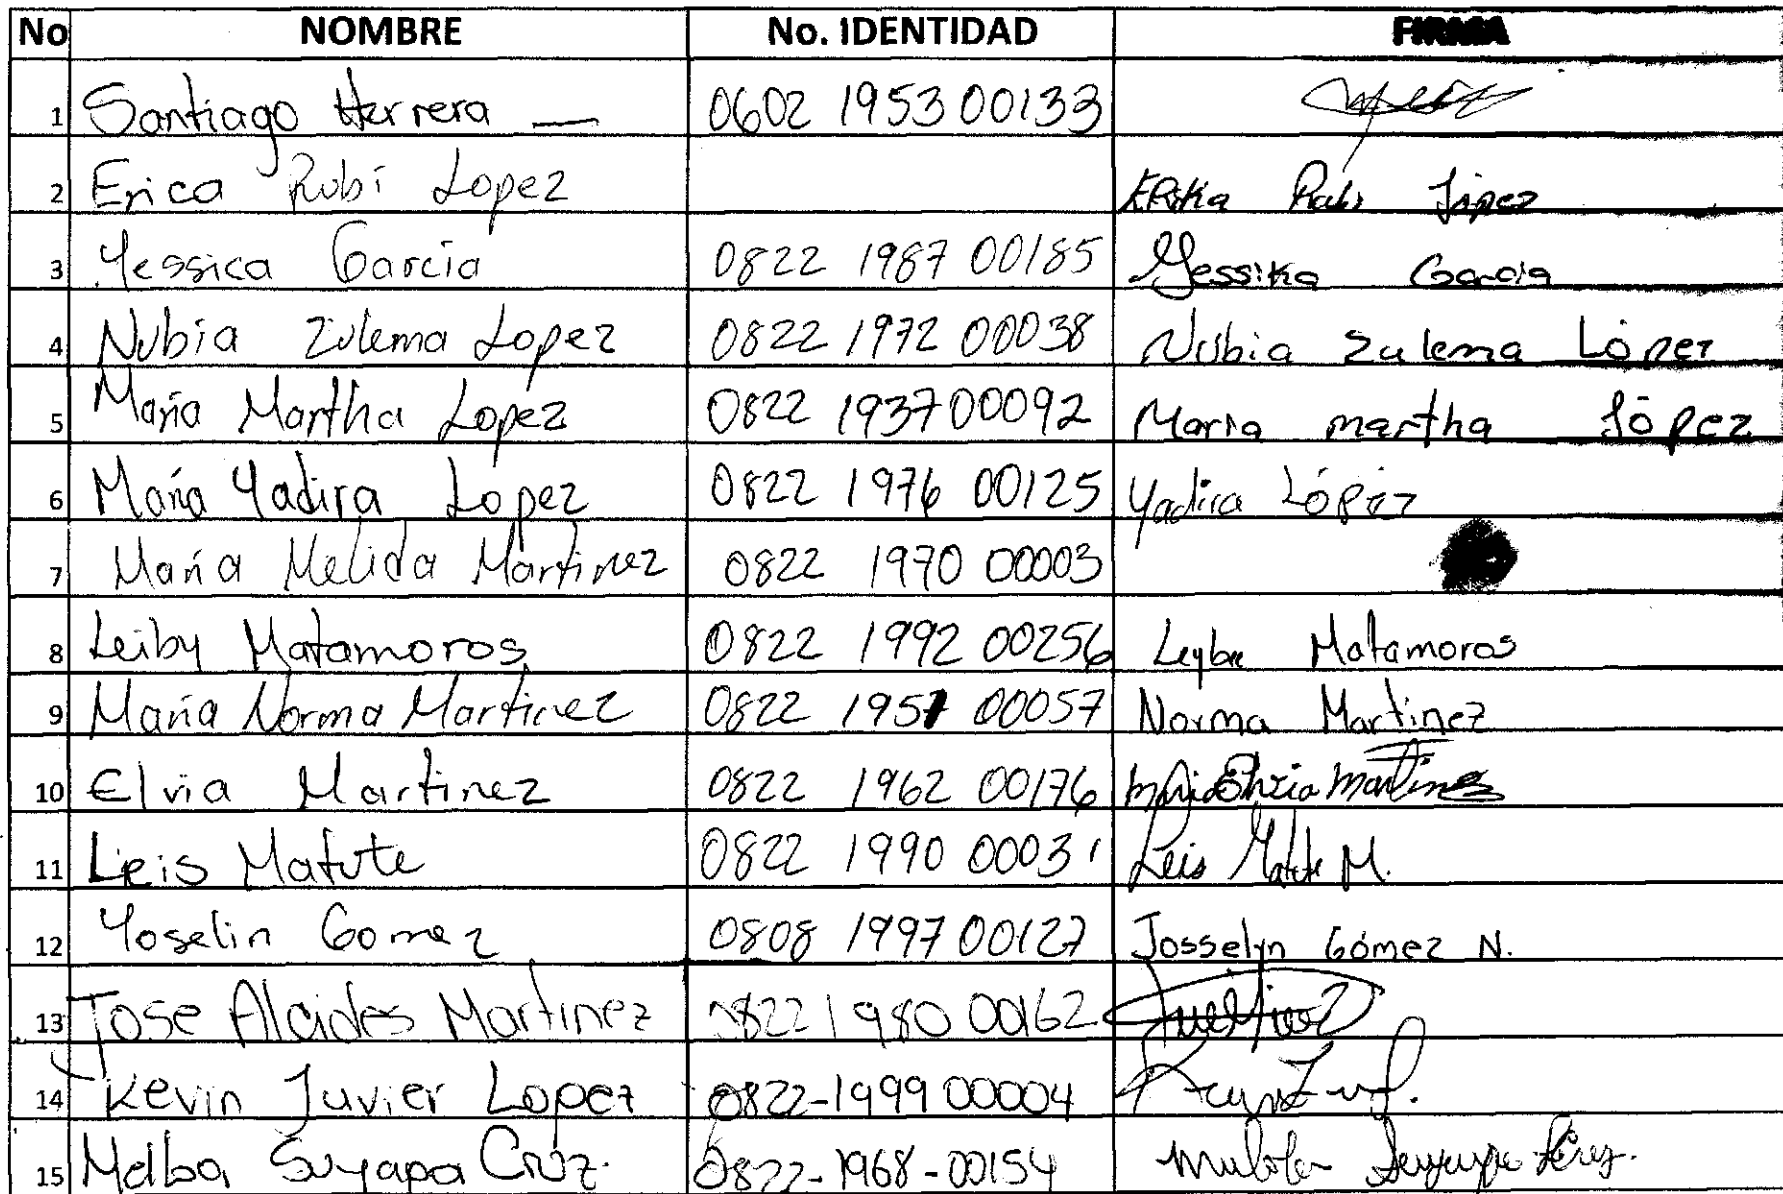 No NOMBRE No. IDENTIDAD FIRMA
1 Santiago Herrera 0602 1953 00133
2 Erica Rubí Lopez Erika Rubi López
3 Yessica Garcia 0822 1987 00185 Yessika Garcia
4 Nubia Zulema Lopez 0822 1972 00038 Nubia Zulema López
5 Maria Martha Lopez 0822 1937 00092 Maria martha López
6 Maria Yadira Lopez 0822 1976 00125 Yadira López
7 Maria Melida Martinez 0822 1970 00003
8 Leiby Matamoros 0822 1992 00256 Matamoros
9 Maria Norma Martinez 0822 1957 00057 Norma Martinez
10 Elvia Martinez 0822 1962 00176 Maria Elvia Martinez
11 Leis Matute 0822 1990 00031 Leis Matute M.
12 Yoselin Gomez 0808 1997 00127 Josselyn Gómez N.
13 Jose Alcides Martinez 0822 1980 00162
14 Kevin Juvier Lopez 0822-1999 00004
15 Melba Suyapa Cruz. 0822-1968-00154 Suyapa Cruz.